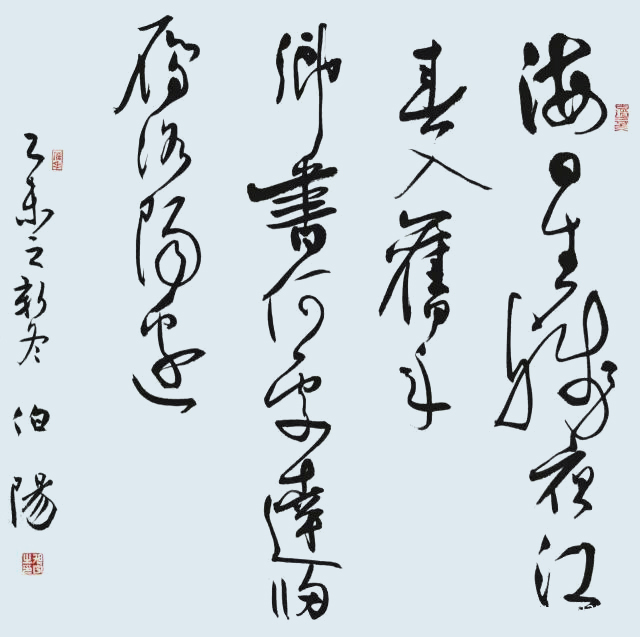 海日生殘夜江
春入舊年
鄉書何處達歸
雁洛陽邊
乙未之新冬 伯陽